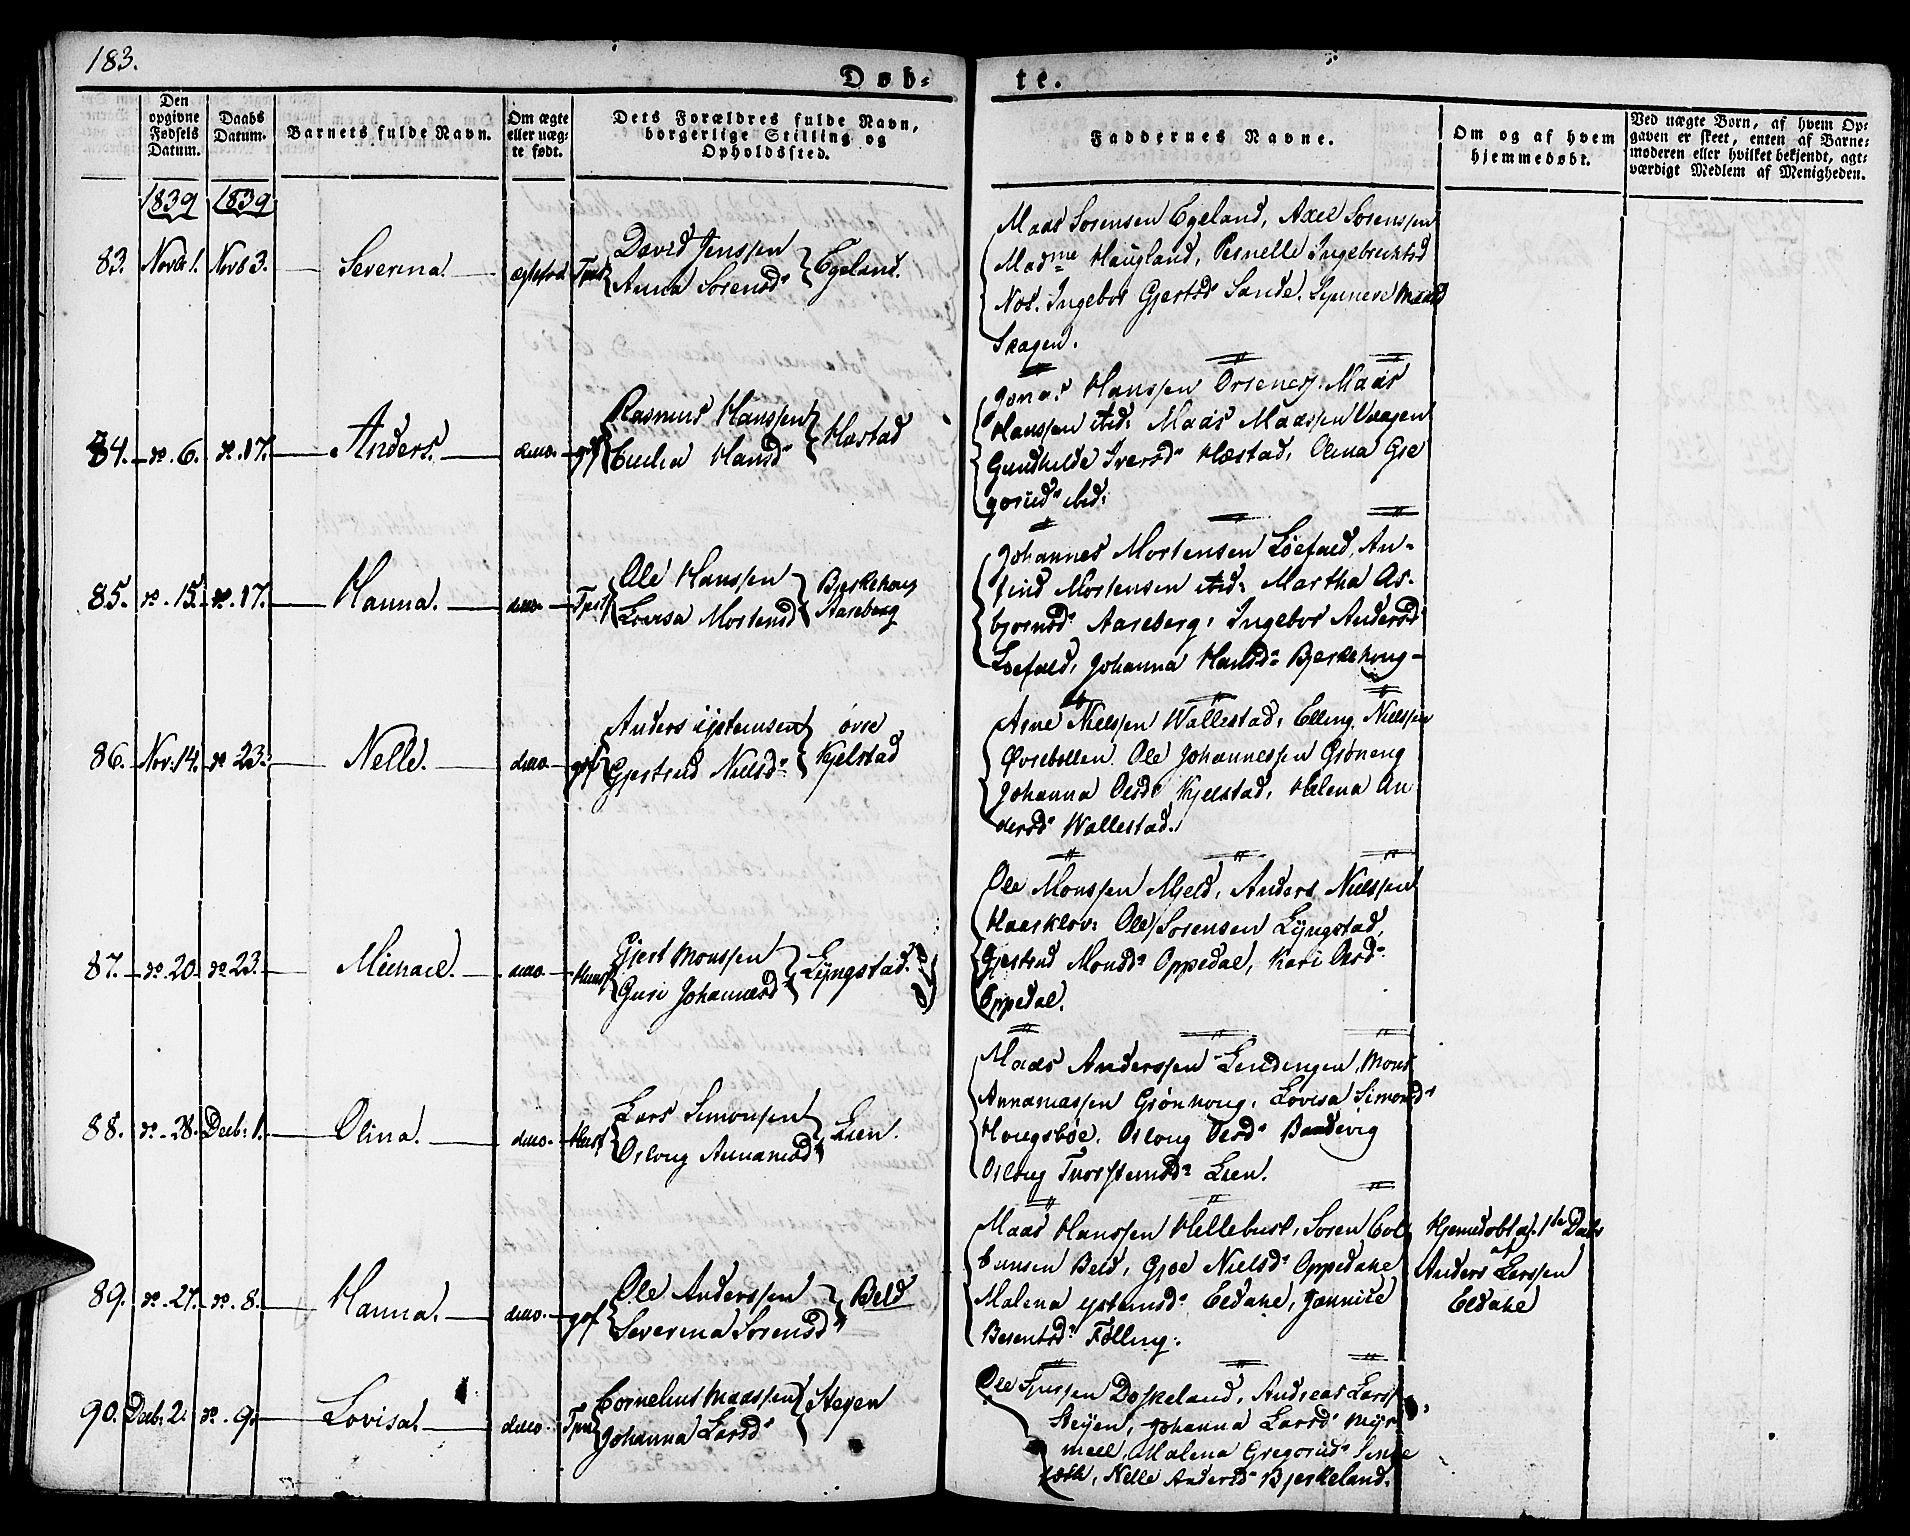 183.
Døb-
te.
Den opgivne Fødsels Datum.
Daabs Datum.
Barnets fulde Navn.
Om ægte eller uægte født.
Dets Forældres fulde Navn, borgerlige Stilling og Opholdssted.
Faddernes Navne.
Om og af hvem hjemmedøbt.
Ved uægte Børn, af hvem Opgaven er skeet, enten af Barnemoderen eller hvilket bekjendt, agtværdigt Medlem af Menigheden.
1839 1839
83. Novbr 1. Novb 3. Severina. ægtefød
David Jenssen
Anna Sørensdr
Egeland.
Maas Sørensen Egeland, Axel Sørenssen
Madme Haugland, Pernelle Ingebrichtsd
Ingebor Gjertsdr Sande. Synneve
Skagen.
84. do. 6. do. 17. Anders. ditto. gbf
Rasmus Hanssen
Hansdr
Hæstad
Jonas Hanssen Maas
Hanssen ibid: Maas Maassen Vaagen
Gundhilde Iversdr Hæstad, Olina Gre
gorisdr ibid:
85. do. 15. do. 17. Hanna. ditto.
Ole Hanssen
Lovisa Mortensd
Bjerkehoug
Aareberg
Johannes Mortensen Løefald, An-
find Mortensen ibid: Martha As-
bjørnsdr Aareberg, Ingebor Andersdr
Løefald, Johanna Hansdr Bjerkehoug
86. Nov. 14. do 23. Nelle. ditto. gbf
Anders Ystensen
Gjertrud Nielsdr
øvre
Kjelstad
Arne Nielssen Wallestad, Elling Nielssen
Øvrebotten. Ole Johannessen Grøneng
Johanna Olsdr Kjelstad, Helena An
dersdr Wallestad.
87. do. 20. do 23. Michael. ditto. Huusf
Gjert Monssen
Guri Johannesd
Lyngstad.
Ole Monssen Mjeld, Anders Nielssen
Haarklov. Ole Sørensen Lyngstad,
Gjertrud Monsdr Oppedal, Kari Olsdr
Oppedal.
88. do. 28. Decb: 1. Olina. ditto. Huusf
Lars Simonsen
Osloug Annaniasdr
Lien.
Maas Anderssen Lendingen, Mons
Annaniassen Grønhoug, Lovisa Simonsdr
Hougsbøe, Osloug Olsdr Bandevig
Osloug Thorstensdr Lien.
89. do. 27. do. 8. Hanna. ditto. gbf
Ole Anderssen
Severina Sørensdr
Beld
Maas Hanssen Hellebust, Søren Col
bensen Beld, Gjøe Nielsdr Oppedahl
Malena Ystensdr Eldahl, Jannike
Berentsdr Følling.
Hjemmedøbt d. 1te Decbr
af
Anders Larssen
Eldahl
90. Decb: 2. do. 9. Lovisa. ditto.
Cornelius Maassen
Johanna Larsdr
Steyen
Ole Døskeland, Andreas Larss
Steyen, Johanna Larsdr Myr
mell, Malena Gregorisdr
Nelle Andersdr Bjerkeland.